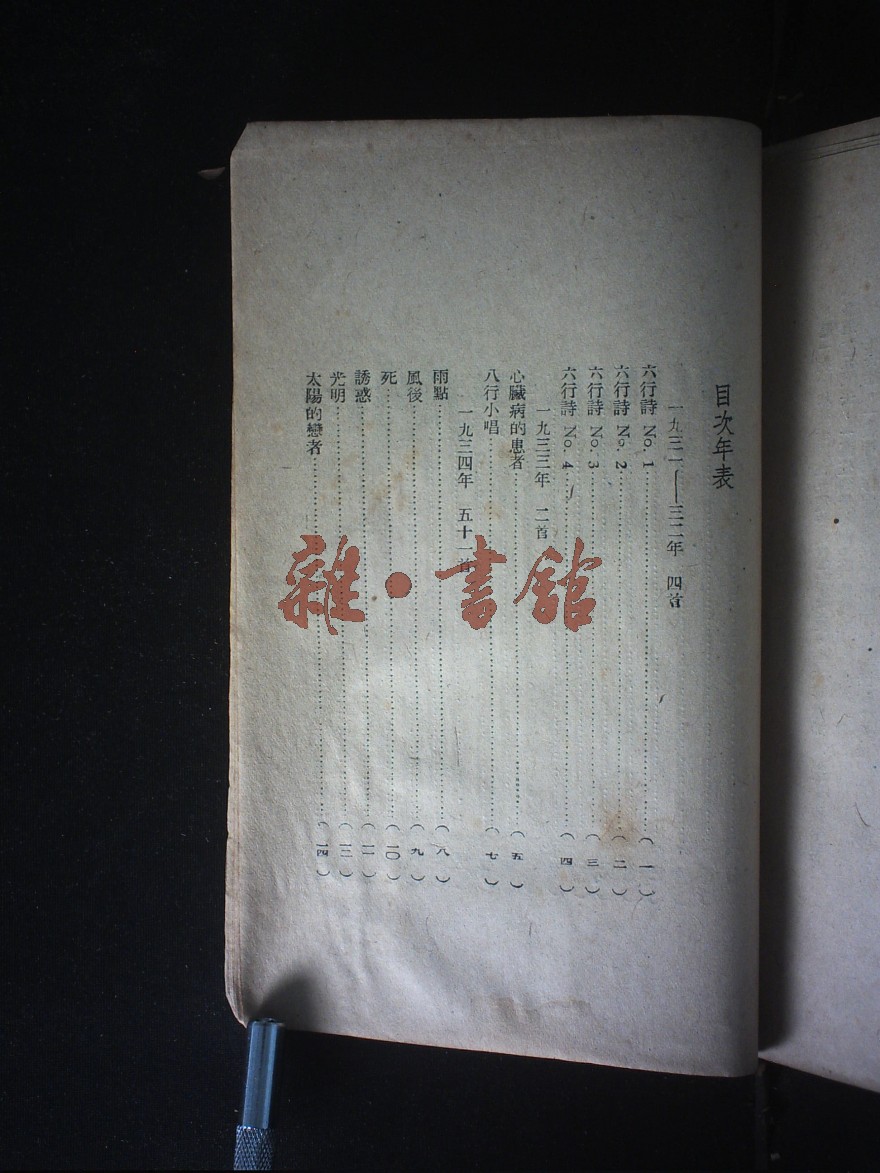 目次年表
一九三一——三二年　四首
六行詩 No. 1……(一)
六行詩 No. 2……(二)
六行詩 No. 3……(三)
六行詩 No. 4……(四)
一九三三年　二首
心臟病的患者……(五)
八行小唱……(七)
一九三四年　五十一首
雨點……(八)
風後……(九)
死……(一〇)
誘惑……(一一)
光明……(一二)
太陽的戀者……(一四)
雜·書館